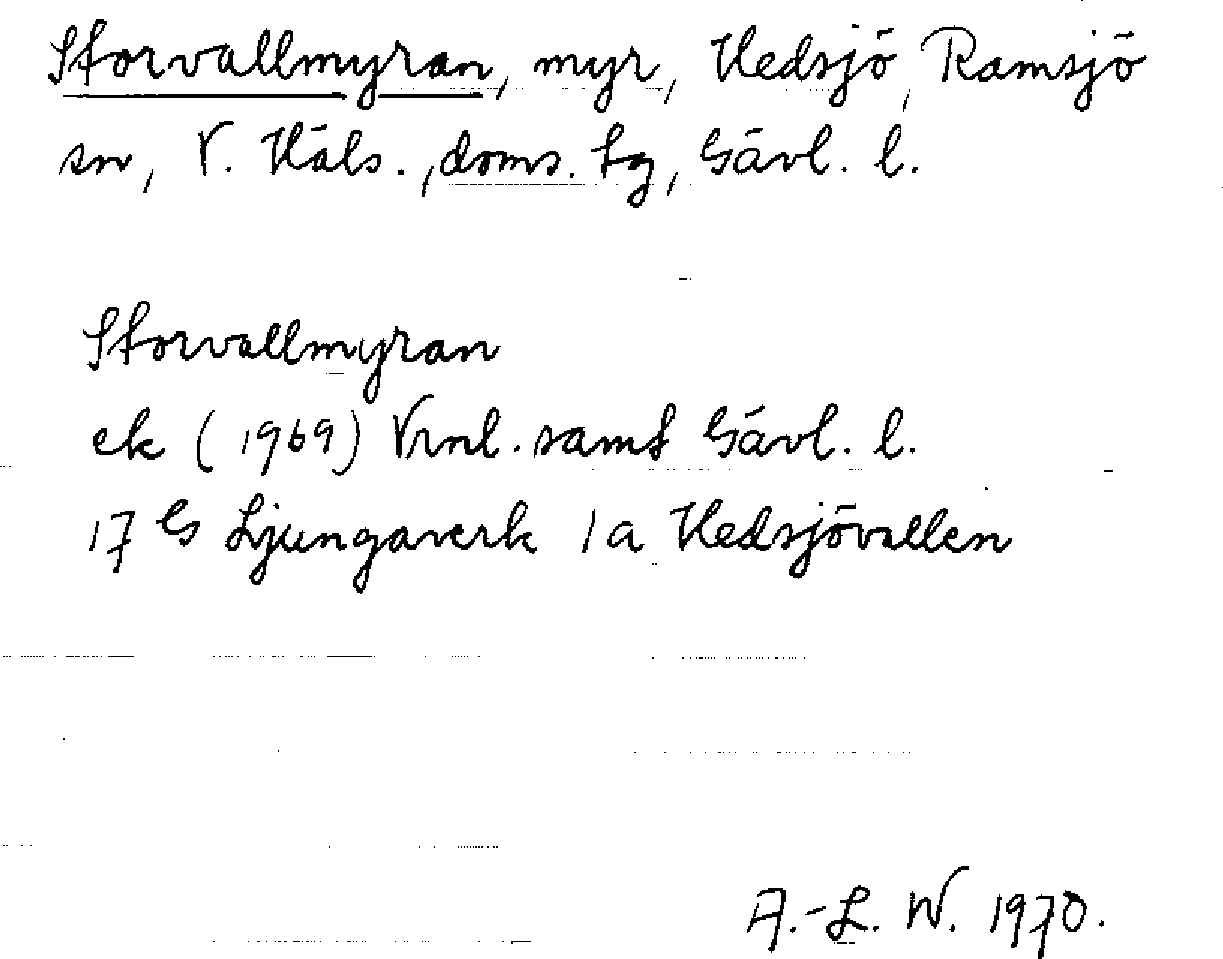 Storvallmyran, myr, Hedsjö, Ramsjö
sn, V. Häls., doms. fg, Gävl. l.
Storvallmyran
ek (1969) Vrnl. samf Gävl. l.
17 G Ljungaverk 1a Hedsjövallen
A.-L. W. 1970.